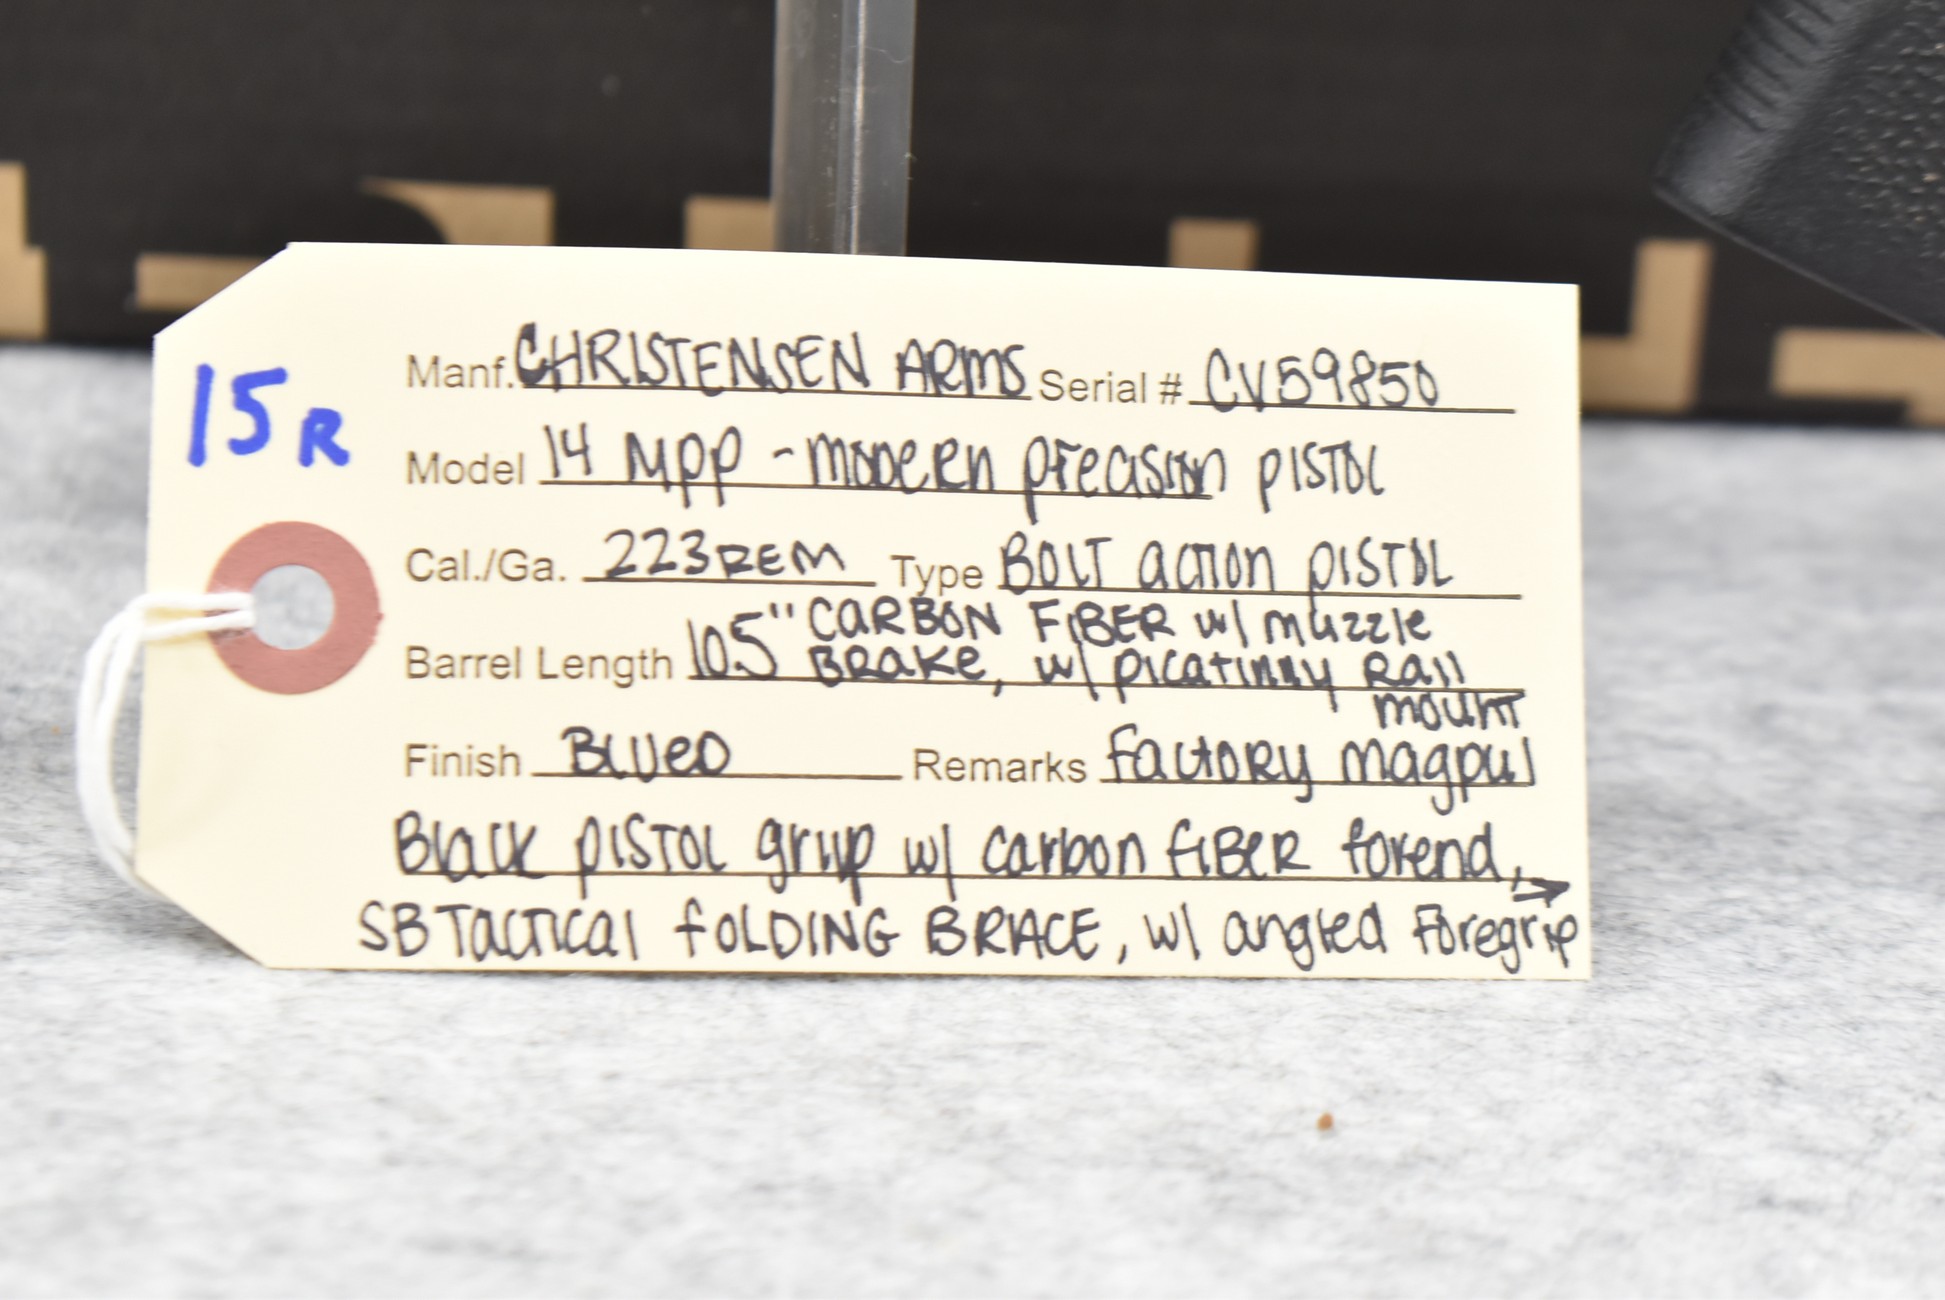 15R
Manf. CHRISTENSEN ARMS Serial # CV59850
Model 14 MPP - MODERN PRECISION PISTOL
Cal./Ga. 223 REM Type BOLT ACTION PISTOL
Barrel Length 10.5" CARBON FIBER w/ muzzle
BRAKE, w/ picatinny Rail
mount
Finish BLUED Remarks factory magpul
Black PISTOL grip w/ carbon fiBER forend, →
SB TACTICAL fOLDING BRACE, w/ angled Foregrip